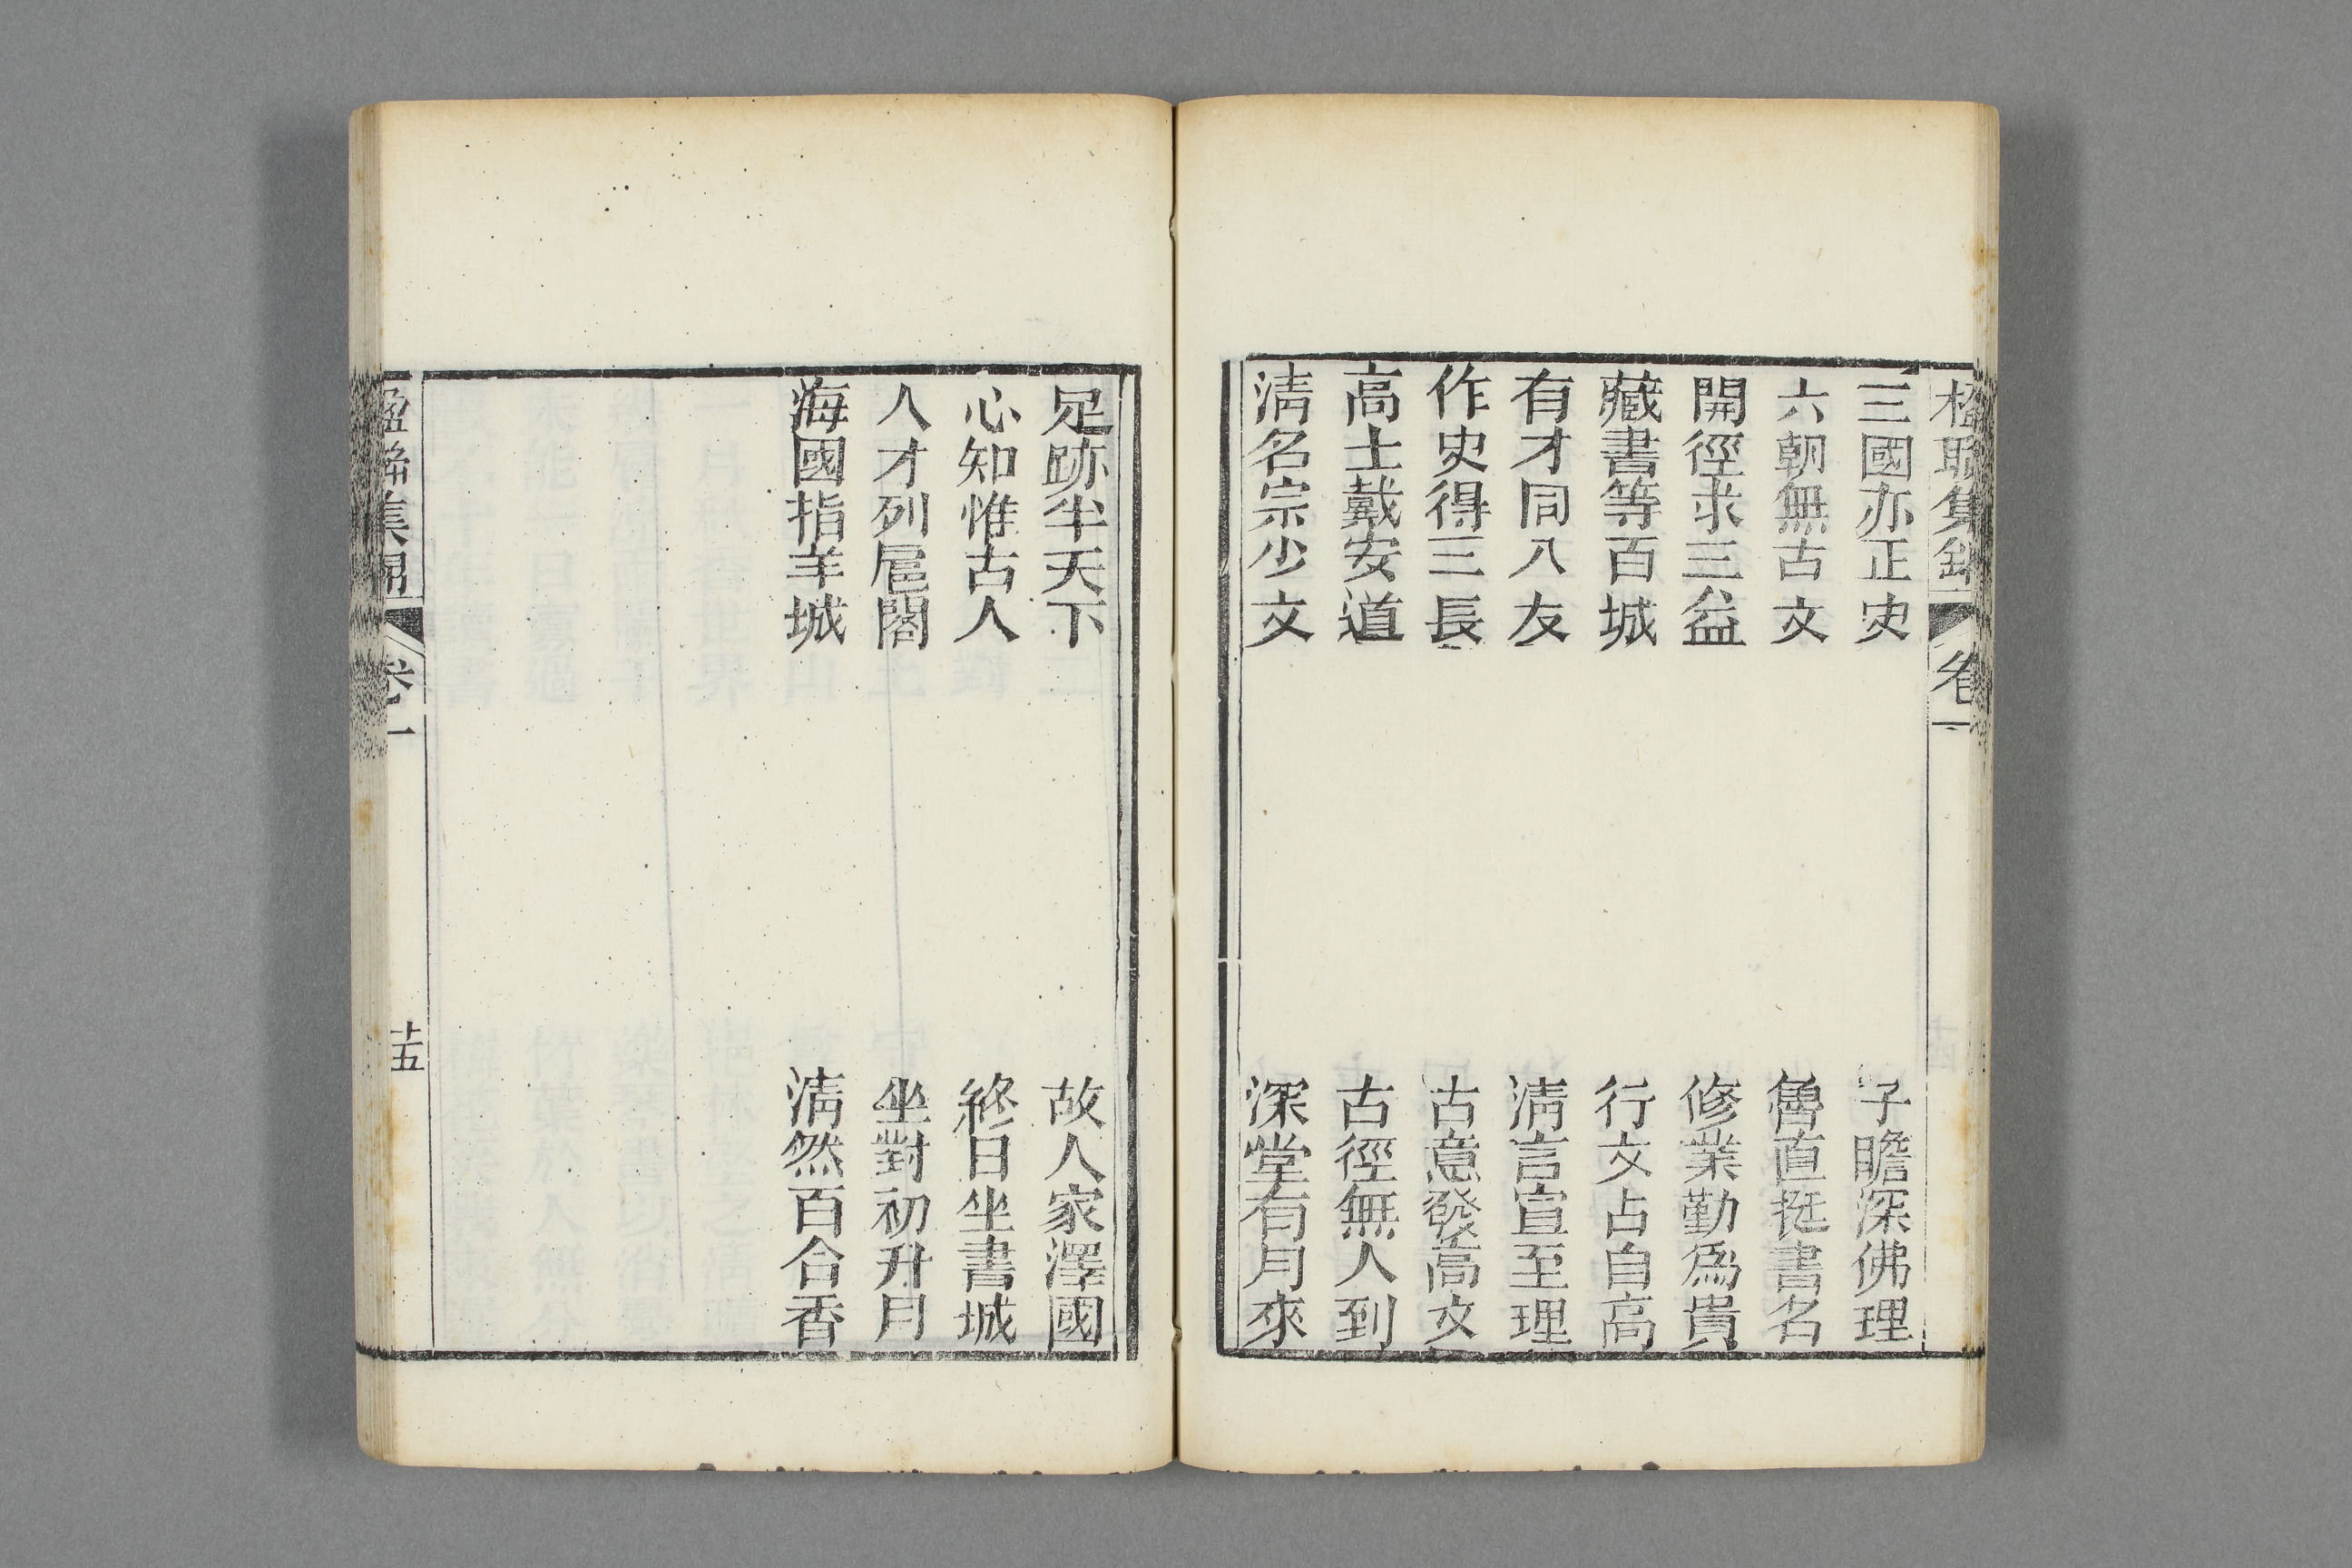 楹聯集錦
卷一
三國亦正史
子瞻深佛理
六朝無古文
魯直挺書名
開徑求三益
修業勤為貴
藏書等百城
行文占自高
有才同八友
清言宣至理
作史得三長
古意發高文
高士戴安道
古徑無人到
清名宗少文
深堂有月來
足跡半天下
故人家澤國
心知惟古人
終日坐書城
人才列扈閣
坐對初升月
海國指羊城
清然百合香
楹聯集錦
卷一
十五